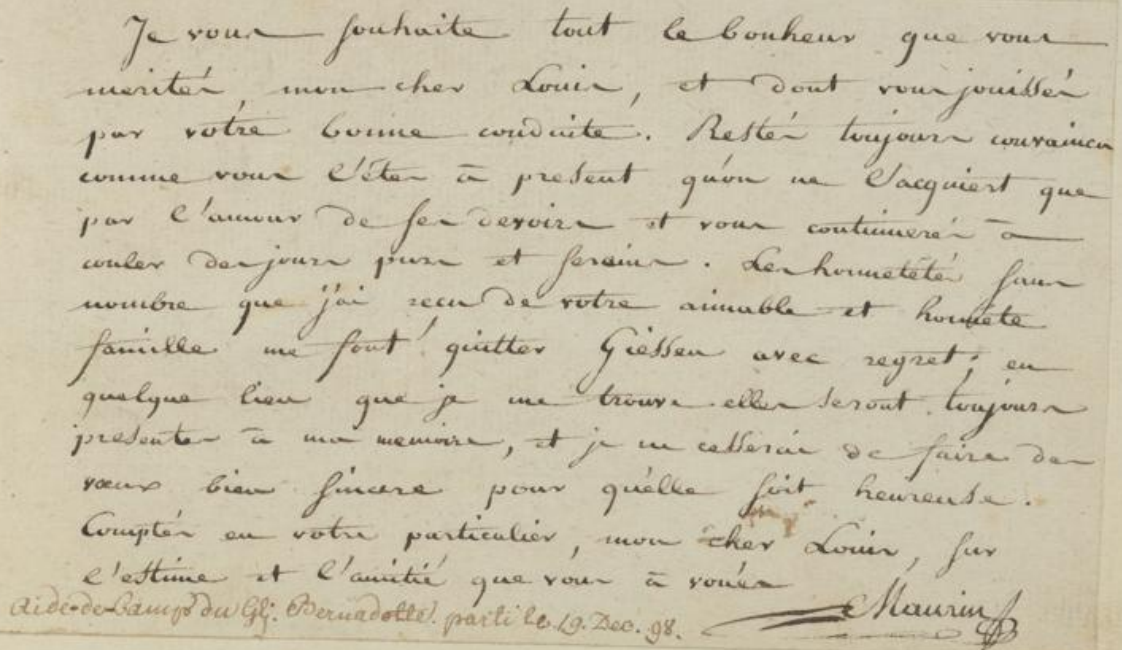 Je vous souhaite tout le bonheur que vous
merités, mon cher Louis, et dont vous jouissés
par votre bonne conduite. Restés toujours convaincu
comme vous l'étes à present qu'on ne l'acquiert que
par l'amour de ses devoirs et vous continuerés à
couler des jours purs et sereins. Les honnetetés sans
nombre que j'ai recu de votre aimable et honnète
famille me font quitter Giessen avec regret; en
quelque lieu que je me trouve elles seront toujours
presentes à ma memoire, et je ne cesserai de faire des
vœux bien sincere pour qu'elle soit heureuse.
Comptés en votre particulier, mon cher Louis, sur
l'estime et l'amitié que vous à voués
Maurin
Aide-de-Camp du Gl. Bernadotte. parti le 19. Dec. 98.